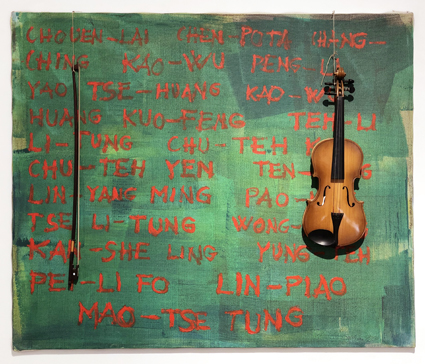 CHOUEN-LAI CHEN-POTA CHING-
CHING KAO-WU PENG-
YAO TSE-HUANG KAO-W
HUANG KUO-FENG TEH-LI
LI-TUNG CHU-TEH
CHU-TEH YEN TEN-
LIN-YANG MING PAO-
TSE LI-TUNG WONG-
KAI-SHE LING YUNG TEH
PEI-LI FO LIN-PIAO
MAO-TSE TUNG